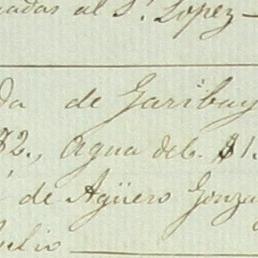 uadas al Sr. Lopez —
da de Garibay
32., Agua deb. $1.
de Agüero Gonza